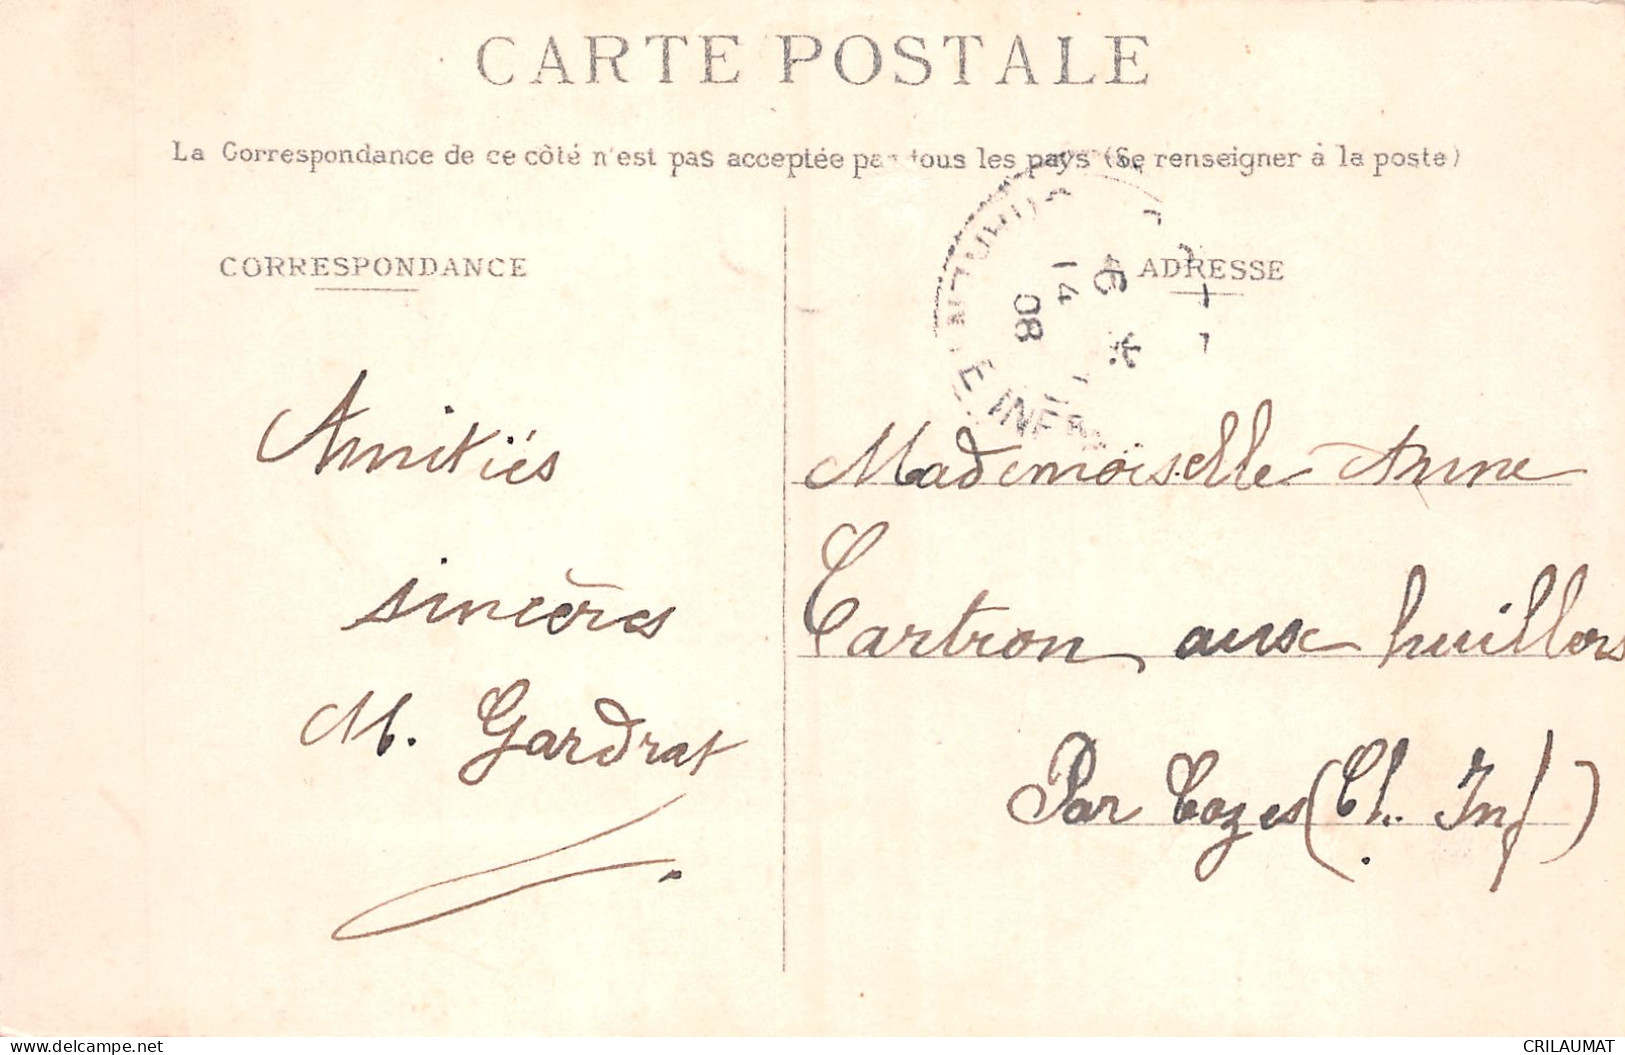 CARTE POSTALE
La Correspondance de ce côté n'est pas acceptée par tous les pays (Se renseigner à la poste)
CORRESPONDANCE
Amitiés
sincères
M. Gardrat
ADRESSE
14
08
E INF
Mademoiselle Anne
Cartron aux huillers
Par Cozes (Ch. Inf)
www.delcampe.net
CRILAUMAT